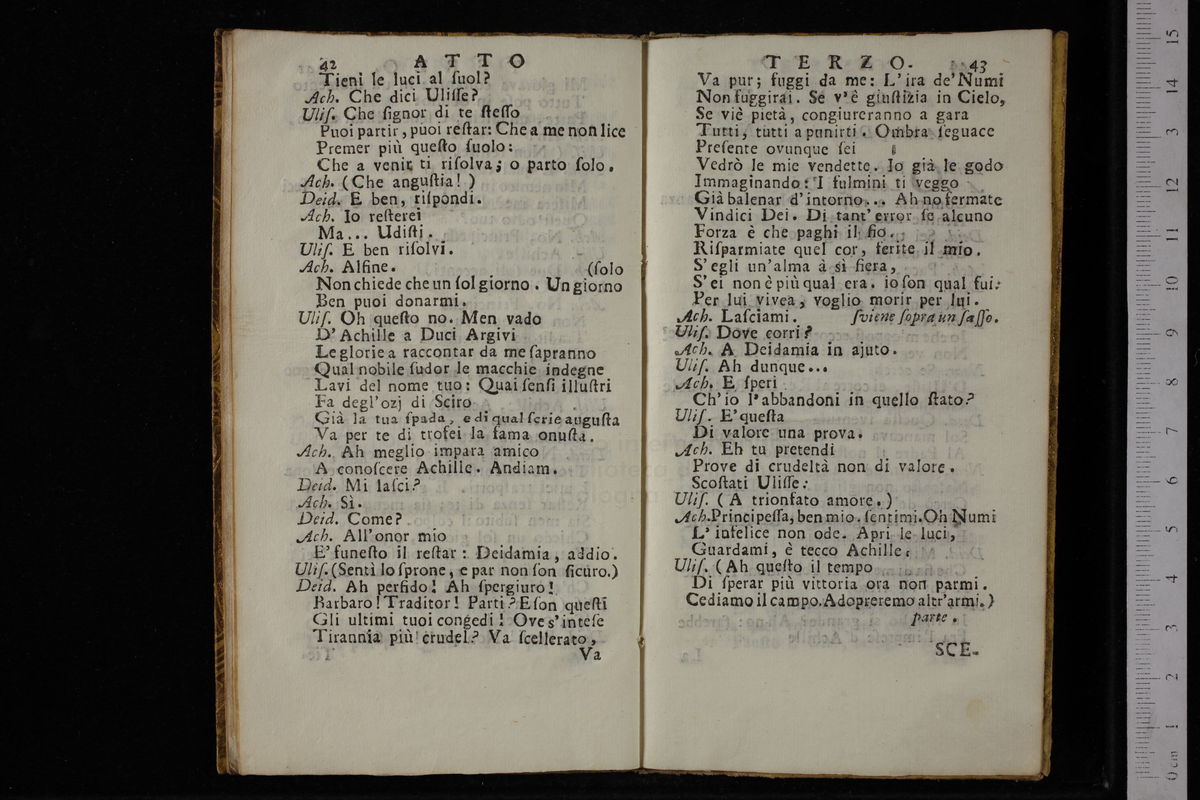 42 ATTO
Tieni le luci al ſuol?
Ach. Che dici Uliſſe?
Uliſ. Che ſignor di te ſteſſo
Puoi partir, puoi reſtar: Che a me non lice
Premer più queſto ſuolo:
Che a venir ti riſolva; o parto ſolo.
Ach. (Che anguſtia!)
Deid. E ben, riſpondi.
Ach. Io reſterei
Ma... Udiſti.
Uliſ. E ben riſolvi.
Ach. Alfine. (ſolo
Non chiede che un ſol giorno. Un giorno
Ben puoi donarmi.
Uliſ. Oh queſto no. Men vado
D'Achille a Duci Argivi
Le glorie a raccontar da me ſapranno
Qual nobile ſudor le macchie indegne
Lavi del nome tuo: Quai ſenſi illuſtri
Fa degl'ozj di Sciro
Già la tua ſpada, e di qual ſerie auguſta
Va per te di trofei la fama onuſta.
Ach. Ah meglio impara amico
A conoſcere Achille. Andiam.
Deid. Mi laſci?
Ach. Sì.
Deid. Come?
Ach. All'onor mio
E' funeſto il reſtar: Deidamia, addio.
Uliſ. (Sentì lo ſprone, e par non ſon ſicuro.)
Deid. Ah perfido! Ah ſpergiuro!
Barbaro! Traditor! Parti? E ſon queſti
Gli ultimi tuoi congedi! Ove s'inteſe
Tirannia più crudel? Va ſcellerato,
Va
TERZO. 43
Va pur; fuggi da me: L'ira de' Numi
Non fuggirai. Se v'è giuſtizia in Cielo,
Se viè pietà, congiureranno a gara
Tutti, tutti a punirti. Ombra ſeguace
Preſente ovunque ſei
Vedrò le mie vendette. Io già le godo
Immaginando: I fulmini ti veggo
Già balenar d'intorno... Ah no fermate
Vindici Dei. Di tant'error ſe alcuno
Forza è che paghi il fio.
Riſparmiate quel cor, ferite il mio.
S'egli un'alma à sì fiera,
S'ei non è più qual era. io ſon qual fui:
Per lui vivea, voglio morir per lui.
Ach. Laſciami. ſviene ſopra un ſaſſo.
Uliſ. Dove corri?
Ach. A Deidamia in ajuto.
Uliſ. Ah dunque...
Ach. E ſperi
Ch'io l'abbandoni in quello ſtato?
Uliſ. E' queſta
Di valore una prova.
Ach. Eh tu pretendi
Prove di crudeltà non di valore.
Scoſtati Uliſſe:
Uliſ. (A trionfato amore.)
Ach. Principeſſa, ben mio. ſentimi. Oh Numi
L'infelice non ode. Apri le luci,
Guardami, è tecco Achille.
Uliſ. (Ah queſto il tempo
Di ſperar più vittoria ora non parmi.
Cediamo il campo. Adopreremo altr'armi.)
parte.
SCE-